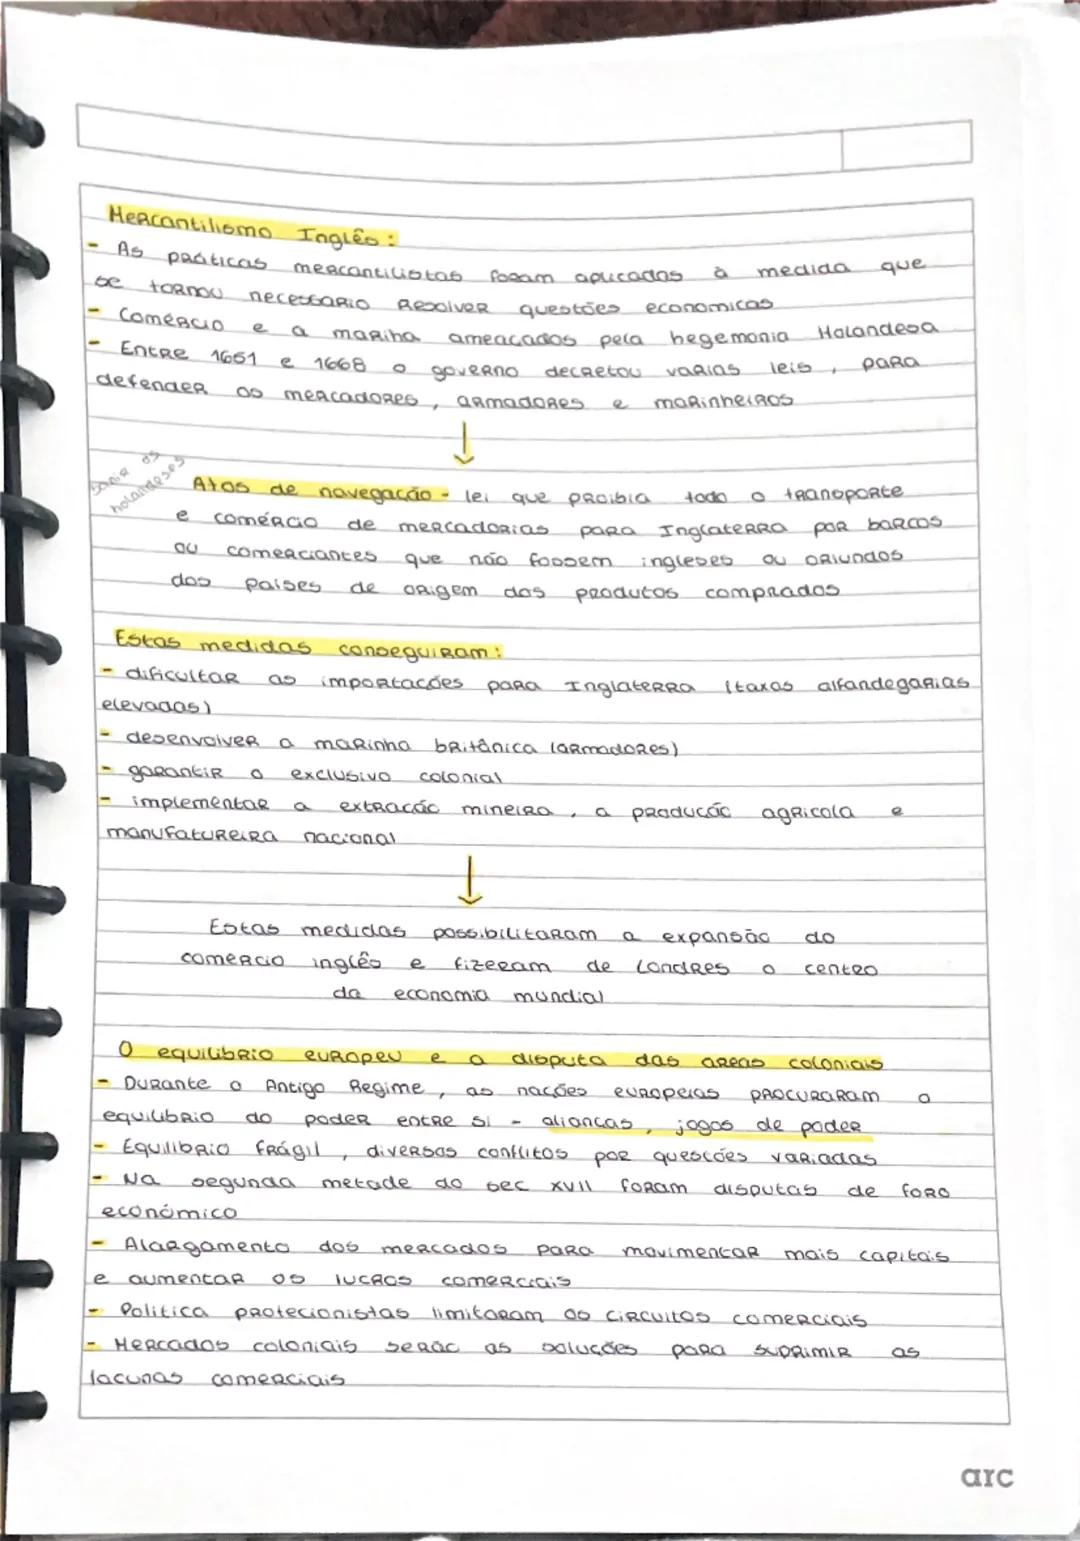 Mercantilismo Inglês:
- As práticas mercantilistas foram aplicadas à medida que
se tornou necessario Resolver questões economicas
- Comércio e a mariha ameacados pela hegemonia Holandesa
- Entre 1651 e 1668 o governo decretou varias leis, para
defender os mercadores, armadores e marinheiros
↓
banir os
holandeses
Atos de navegacão - lei que proibia todo o transporte
e comércio de mercadorias para Inglaterra por barcos
ou comerciantes que não fossem ingleses ou oriundos
dos paises de origem dos produtos comprados
Estas medidas conseguiram:
- dificultar as importacões para Inglaterra (taxas alfandegarias
elevadas)
- desenvolver a marinha britânica (armadores)
- garantir o exclusivo colonial
- implementar a extracão mineira, a producão agricola e
manufatureira nacional
↓
Estas medidas possibilitaram a expansão do
comercio inglês e fizeram de Londres o centro
da economia mundial
O equilibrio europeu e a disputa das areas coloniais
- Durante o Antigo Regime, as nacões europeias procuraram o
equilibrio do poder entre si - aliancas, jogos de poder
- Equilibrio frágil, diversos conflitos por questões variadas
- Na segunda metade do sec XVII foram disputas de foro
económico
- Alargamento dos mercados para movimentar mais capitais
e aumentar os lucros comerciais
- Politica protecionistas limitaram os circuitos comerciais
- Mercados coloniais serão as soluções para suprimir as
lacunas comerciais
arc